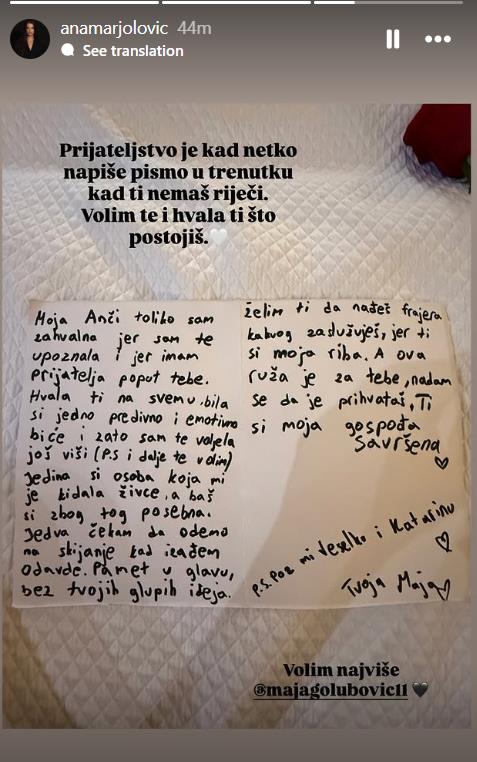 anamarjolovic 44m
See translation
Prijateljstvo je kad netko
napiše pismo u trenutku
kad ti nemaš riječi.
Volim te i hvala ti što
postojiš.🤍
Moja Anči toliko sam
zahvalna jer sam te
upoznala i jer imam
prijatelja poput tebe.
Hvala ti na svemu, bila
si jedno predivno i emotivno
biće i zato sam te voljela
još viši (P.S i dalje te volim)
Jedina si osoba koja mi
je kidala živce, a baš
si zbog tog posebna.
Jedva čekam da odemo
na skijanje kad izađem
odavde. Pamet u glavu,
bez tvojih glupih ideja.
želim ti da nađeš frajera
kakvog zaslužuješ, jer ti
si moja riba. A ova
ruža je za tebe, nadam
se da je prihvataš, Ti
si moja gospođa
savršena
♡
P.S. Poz mi Veselko i Katarinu
♡
Tvoja Maja♡
Volim najviše
@majagolubovic11 🖤